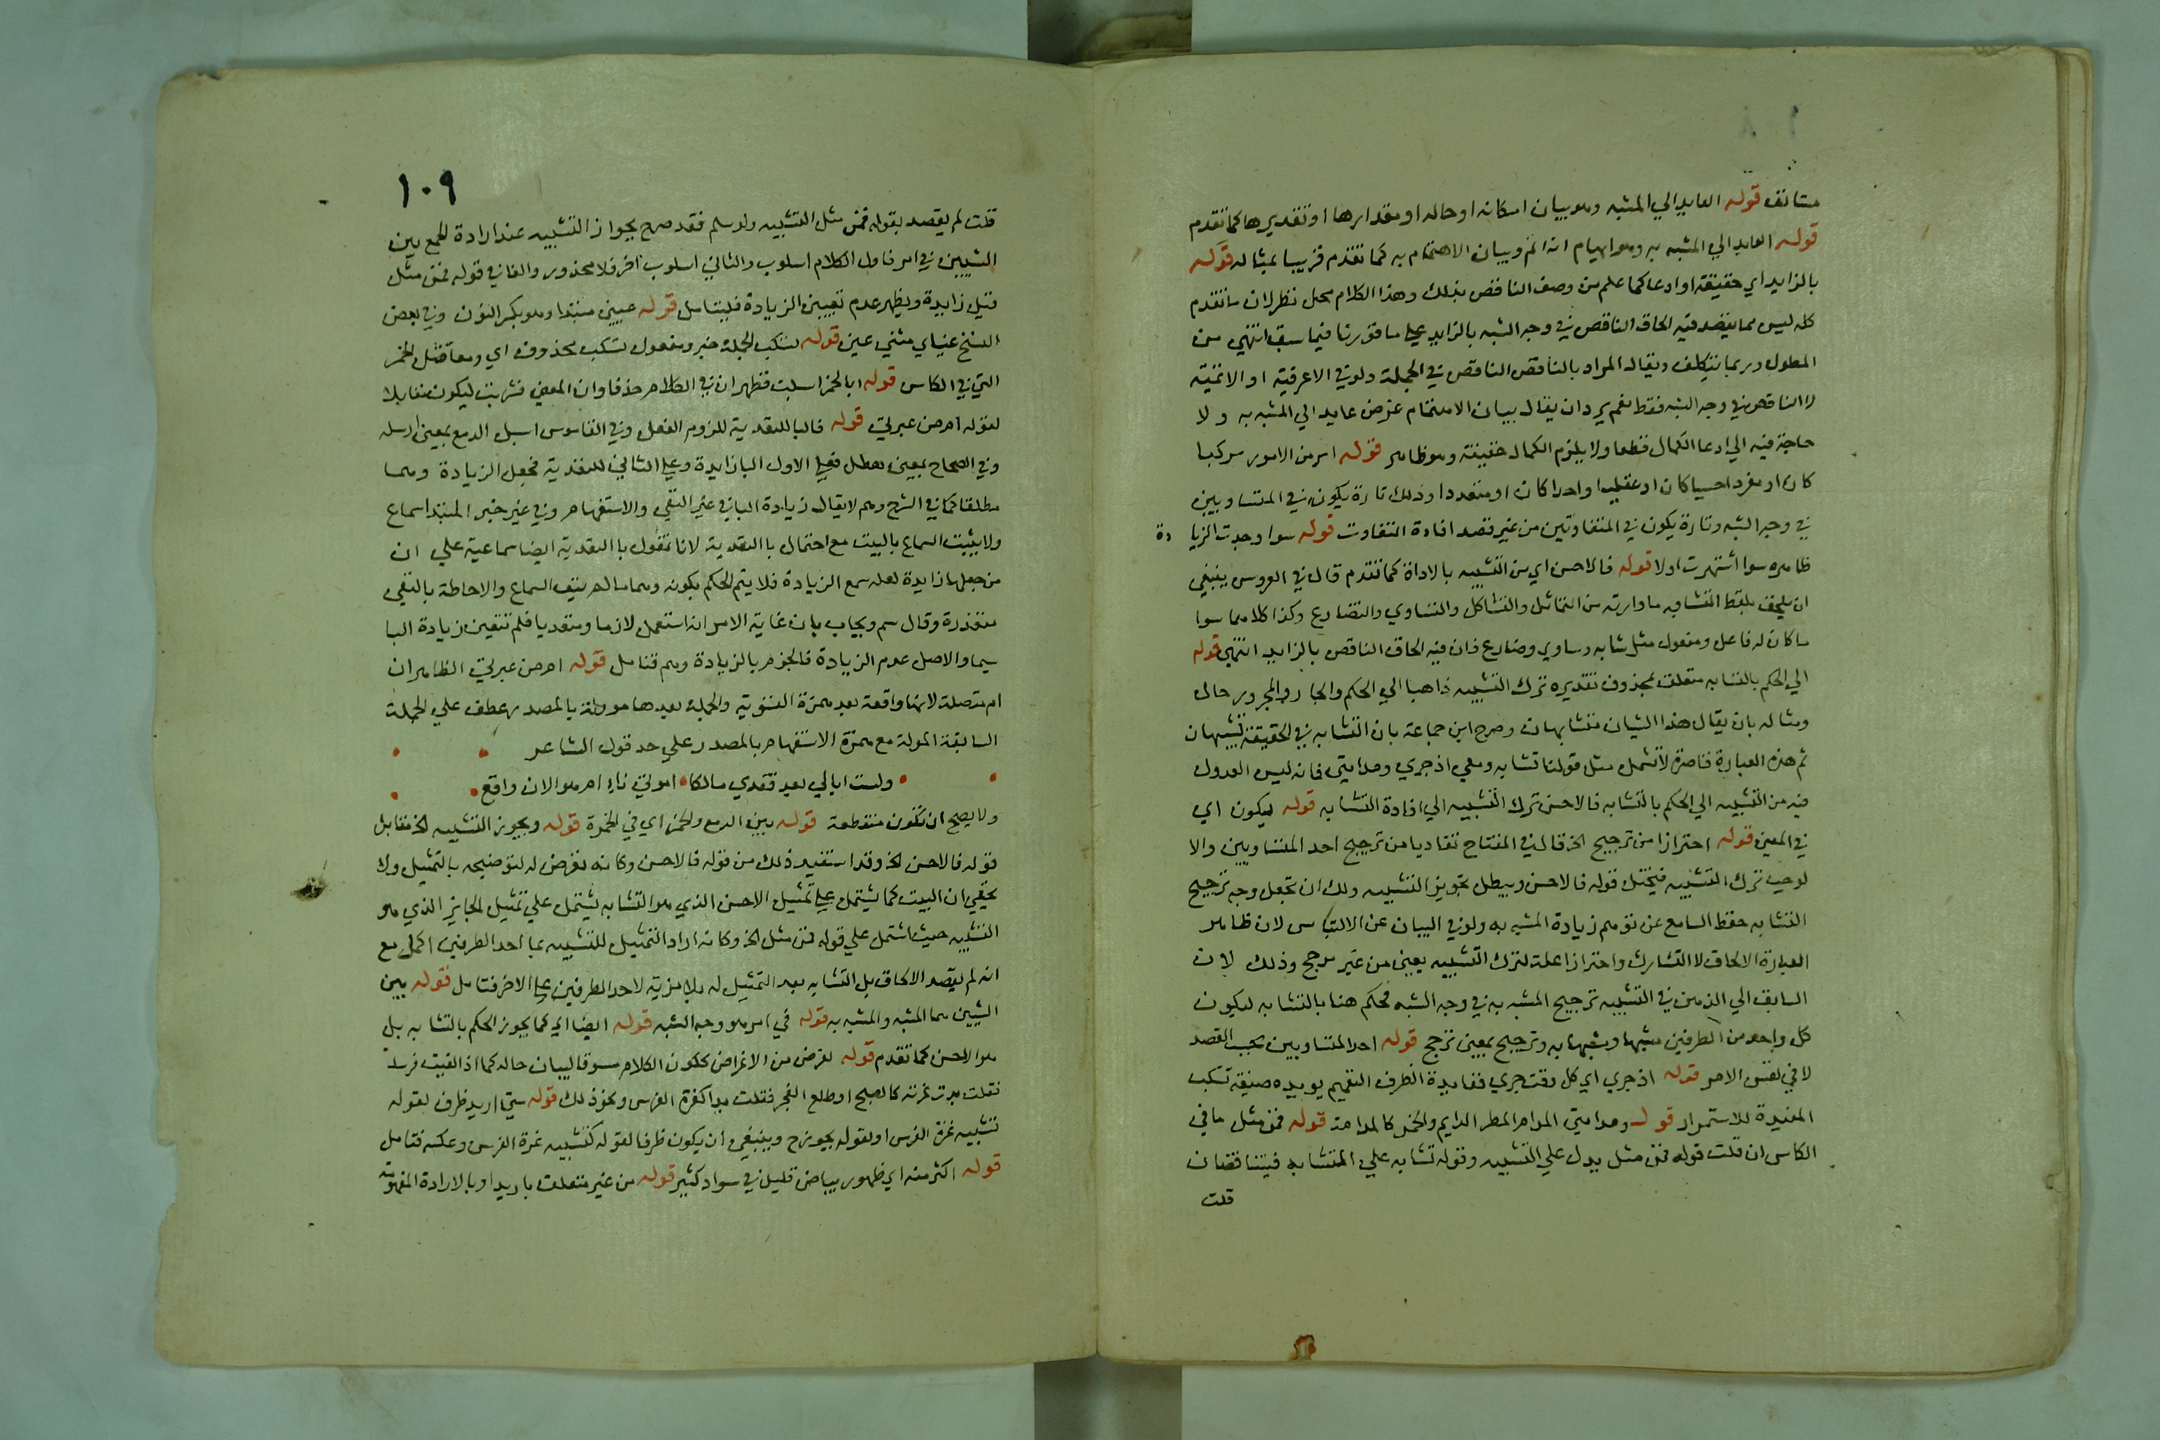 مستانف قوله العايد الي المشبه وهو بيان امكانه او حاله او مقدارها او تقديرها كما تقدم
قوله العايد الي المشبه به وهو ايهام انه اتم وبيان الاهتمام به كما تقدم قريبا بمثاله قوله
بالزايد اي حقيقة او ادعا كما علم من وصف الناقص بذلك وهذا الكلام محل نظر لان ما تقدم
كله ليس مما يقصد فيه الحاق الناقص في وجه الشبه بالزايد علي ما قررنا فيما سبق انتهي من
المطول وربما يتكلف ويقال المراد بالناقص الناقص في الجملة ولو في الاعرفية او الاتمية
لا الناقص في وجه الشبه فقط نعم يرد ان يقال بيان الاهتمام غرض عايد الي المشبه به ولا
حاجة فيه الي ادعا الكمال قطعا ولا يلزم الكمال حقيقة وهو ظاهر قوله امر من الامور مركبا
كان او مفردا حسيا كان او عقليا واحدا كان او متعددا وذلك تارة يكون في المتساويين
في وجه الشبه وتارة يكون في المتفاوتين من غير قصد افادة التفاوت قوله سوا وجدت الزيا دة
ظاهره سوا اشتهرت اولا قوله فالاحسن اي من التشبيه بالاداة كما تقدم قال في العروس ينبغي
ان يلحق بلفظ التشابه ما وازنه من التماثل والتشاكل والتساوي والتضارع وكذا كلاهما سوا
ما كان له فاعل ومفعول مثل شابه وساوي وضارع فان فيه الحاق الناقص بالزايد انتهي قوله
الي الحكم بالتشابه متعلق بمحذوف تقديره ترك التشبيه ذاهبا الي الحكم والجار والمجرور حال
ومثاله بان يقال هذا الشيان متشابهان وصرح ابن جماعة بان التشابه في الحقيقة تشبيهان
ثم هذه العبارة قاصرة لا تشمل مثل قولنا تشابه دمعي اذ جري ومدامتي فانه ليس العدول
فيه من التشبيه الي الحكم بالتشابه فالاحسن ترك التشبيه الي افادة التشابه قوله ليكون اي
في المعني قوله احترازا من ترجيح الخ قال في المفتاح تفاديا من ترجيح احد المتساويين والا
لوجب ترك التشبيه فيختل قوله فالاحسن ويبطل تجويز التشبيه ولك ان تجعل وجه ترجيح
التشابه حفظ السامع عن توهم زيادة المشبه به ولو في البيان عن الالتباس لان ظاهر
العبارة الالحاق لا التشارك واحترازا علة لترك التشبيه يعني من غير مرجح وذلك لان
السابق الي الذهن في التشبيه ترجيح المشبه به في وجه الشبه فحكم هنا بالتشابه ليكون
كل واحد من الطرفين مشبها ومشبها به وترجيح بمعني ترجح قوله احد المتساويين بحسب القصد
لا في نفس الامر قوله اذ جري اي كل وقت جري ففايدة الظرف التعميم يويده صيغة تسكب
المفيدة للاستمرار قوله ومدامتي المدام المطر الدايم والخمر كالمدامة قوله فمن مثل ما في
الكاس ان قلت قوله فمن مثل يدل علي التشبيه وقوله تشابه علي المتشابه فيتناقضان
قلت
١٠٩
قلت لم يقصد بقوله فمن مثل التشبيه ولو سلم فقد صرح بجواز التشبيه عند ارادة الجمع بين
الشيين في امر فاول الكلام اسلوب والثاني اسلوب اخر فلا محذور والفا في قوله فمن مثل
قيل زايدة ويظهر عدم تعيين الزيادة فليتامل قوله عيني مبتدا وهو بكسر النون وفي بعض
النسخ عيناي مثني عين قوله تسكب الجملة خبر ومفعول تسكب محذوف اي دمعا مثل الخمر
التي في الكاس قوله ابالخمر اسبلت فظهر ان في الكلام حذفا وان المعني فشربت ليكون مقابلا
لقوله ام من عبرتي قوله فالبا للتعدية للزوم الفعل وفي القاموس اسبل الدمع بمعني ارسله
وفي الصحاح بمعني هطل فعلي الاول البا زايدة وعلي الثاني للتعدية فجعل الزيادة وهما
مطلقا كما في الشرح وهم لا يقال زيادة البا في غير النفي والاستفهام وفي غير خبر المبتدا سماع
ولا يثبت السماع بالبيت مع احتمال با التعدية لانا نقول با التعدية ايضا سماعية علي ان
من جعلها زايدة لعله سمع الزيادة فلا يتم الحكم بكونه وهما ما لم ينتف السماع والاحاطة بالنفي
متعذرة وقال سم ويجاب بان غاية الامر انه استعمل لازما ومتعديا فلم تتعين زيادة البا
سيما والاصل عدم الزيادة فالجزم بالزيادة وهم فتامل قوله ام من عبرتي الظاهر ان
ام متصلة لانها واقعة بعد همزة التسوية والجملة بعدها موولة بالمصدر عطف علي الجملة
السابقة الموولة مع همزة الاستفهام بالمصدر علي حد قول الشاعر
ولست ابالي بعد فقدي مالكا اموتي ناء ام هو الان واقع
ولا يصح ان تكون منقطعة قوله بين الدمع والخمر اي في الحمرة قوله ويجوز التشبيه الخ مقابل
قوله فالاحسن الخ وقد استفيد ذلك من قوله فالاحسن وكانه تعرض له لتوضيحه بالتمثيل ولا
يخفي ان البيت كما يشتمل علي تمثيل الاحسن الذي هو التشابه يشتمل علي تمثيل الجايز الذي هو
التشبيه حيث اشتمل علي قوله فمن مثل الخ وكانه اراد التمثيل للتشبيه بما احد الطرفين اكمل مع
انه لم يقصد الالحاق بل التشابه بعد التمثيل له بلا مزية لاحد الطرفين علي الاخر فتامل قوله بين
الشيين هما المشبه والمشبه به قوله في امر هو وجه الشبه قوله ايضا اي كما يجوز الحكم بالتشابه بل
هو الاحسن كما تقدم قوله لغرض من الاغراض ككون الكلام مسوقا لبيان حاله كما اذا لقيت فرسا
فقلت بدت غرته كالصبح او طلع الفجر فقلت بدا كغرة الفرس ونحو ذلك قوله متي اريد ظرف لقوله
تشبيه غرة الفرس او لقوله يجوز ح وينبغي ان يكون ظرفا لقوله كتشبيه غرة الفرس وعكسه فتامل
قوله اكثر منه اي ظهور بياض قليل في سواد كثير قوله من غير متعلق باريد او بالارادة المفهومة